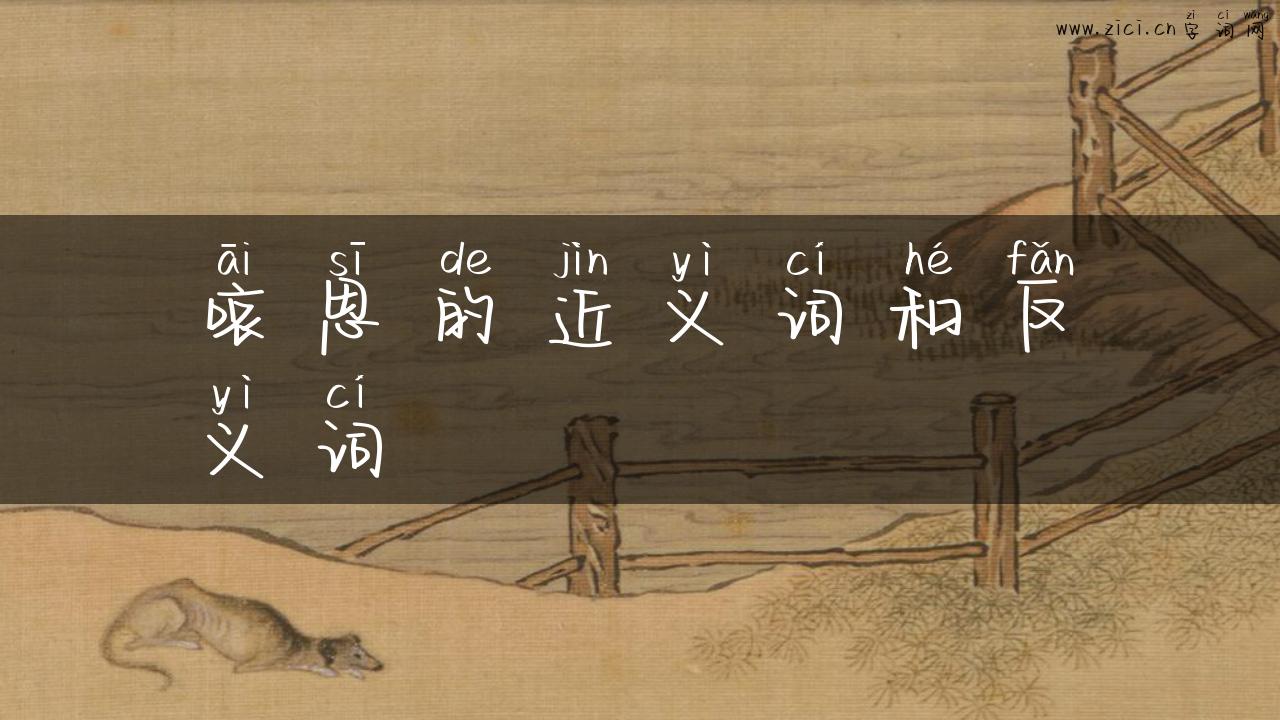 zi ci wang
www.zici.cn字词网
āi sī de jìn yì cí hé fǎn
哀思的近义词和反
yì cí
义词